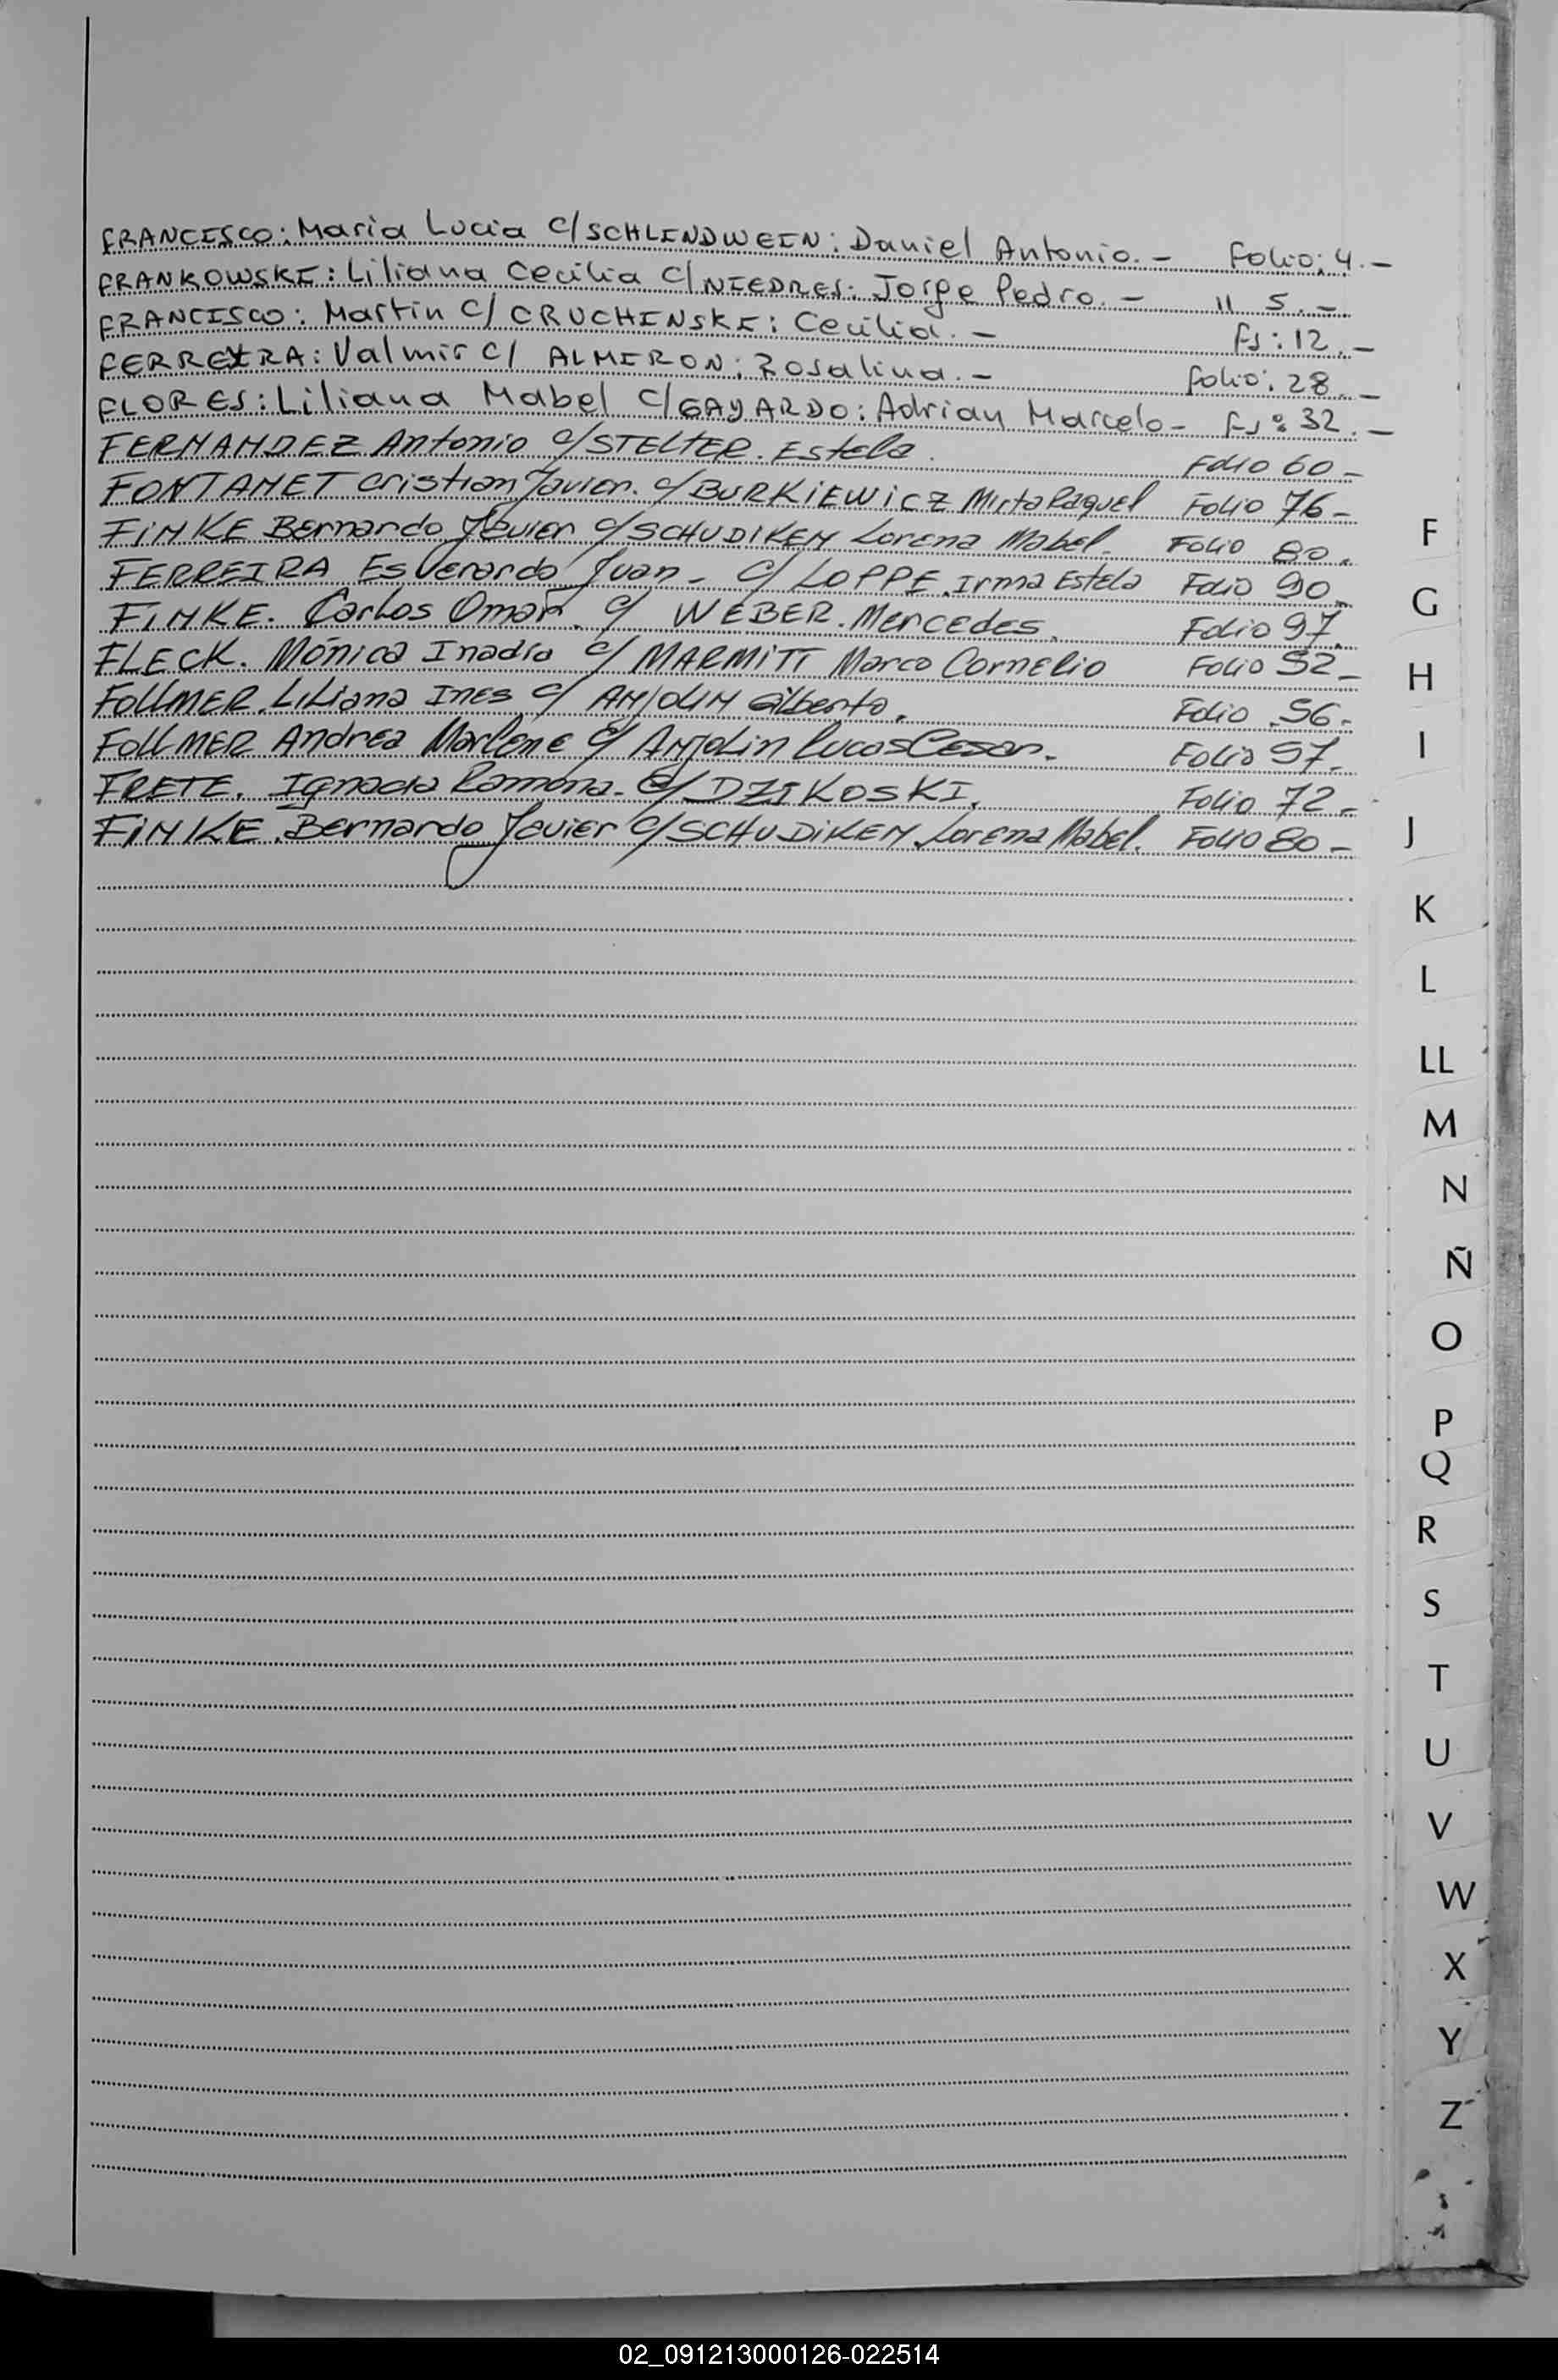 FRANCISCO: Maria Lucia c/ SCHLINDWEIN: Daniel Antonio.- Folio: 4.-
FRANKOWSKI: Liliana Cecilia c/ NIEDRES: Jorge Pedro.- 11 5.-
FRANCISCO: Martin c/ CRUCHINSKI: Cecilia.- Fs: 12.-
FERREIRA: Valmir c/ ALMIRON: Rosalina.- folio: 28.-
FLORES: Liliana Mabel c/ GAYARDO: Adrian Marcelo- Fs: 32.-
FERNANDEZ Antonio c/ STELTER. Estela. Folio 60-
FONTANET Cristian Javier. c/ BURKIEWICZ Mirta Raquel Folio 76-
FINKE Bernardo Javier c/ SCHUDIKEN Lorena Mabel. Folio 80.
FERREIRA Esverardo Juan- c/ LOPPE. Irma Estela Folio 90-
FINKE. Carlos Omar. c/ WEBER. Mercedes. Folio 97.
FLECK. Mónica Inadia c/ MARMITT Marco Cornelio Folio 52-
FOLLMER. Liliana Ines c/ ANJOLIN Gilberto. Folio 56-
FOLLMER Andrea Marlene c/ ANJOLIN Lucas Cesar. Folio 57-
FRETE. Ignacia Ramona. c/ DZIKOSKI. Folio 72-
FINKE. Bernardo Javier c/ SCHUDIKEN. Lorena Mabel. Folio 80-
F
G
H
I
J
K
L
LL
M
N
Ñ
O
P
Q
R
S
T
U
V
W
X
Y
Z
02_091213000126-022514